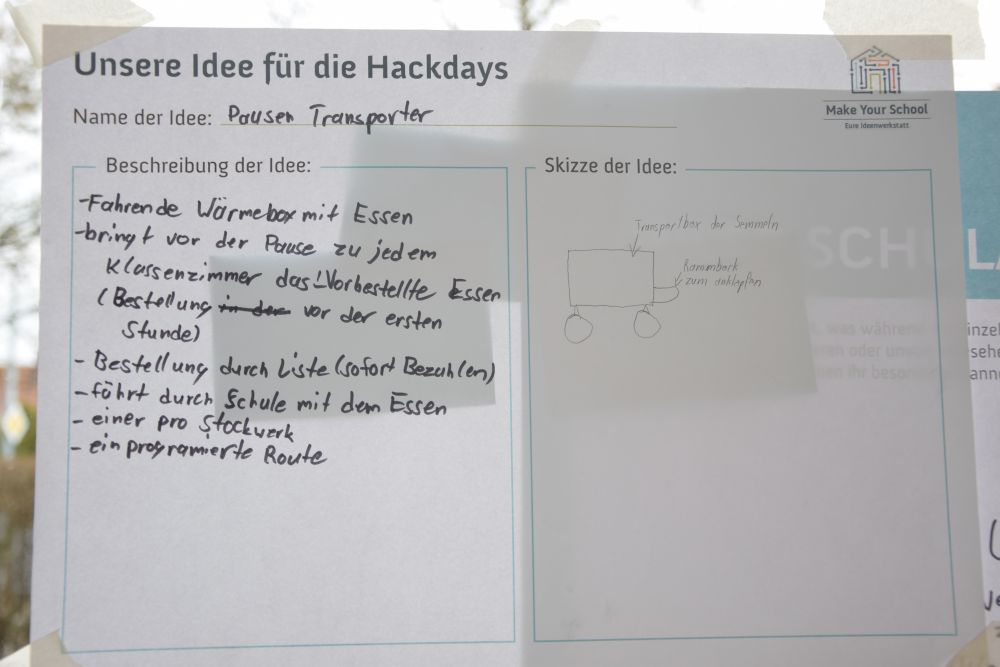 Unsere Idee für die Hackdays
Name der Idee: Pausen Transporter
Make Your School
Eure Ideenwerkstatt
Beschreibung der Idee:
-Fahrende Wärmebox mit Essen
-bringt vor der Pause zu jedem
Klassenzimmer das Vorbestellte Essen
(Bestellung in der vor der ersten
Stunde)
- Bestellung durch Liste (sofort Bezahlen)
- fährt durch Schule mit dem Essen
- einer pro Stockwerk
- ein programierte Route
Skizze der Idee:
Transportbox der Semmeln
zum anklapfen
SCHUL
was während